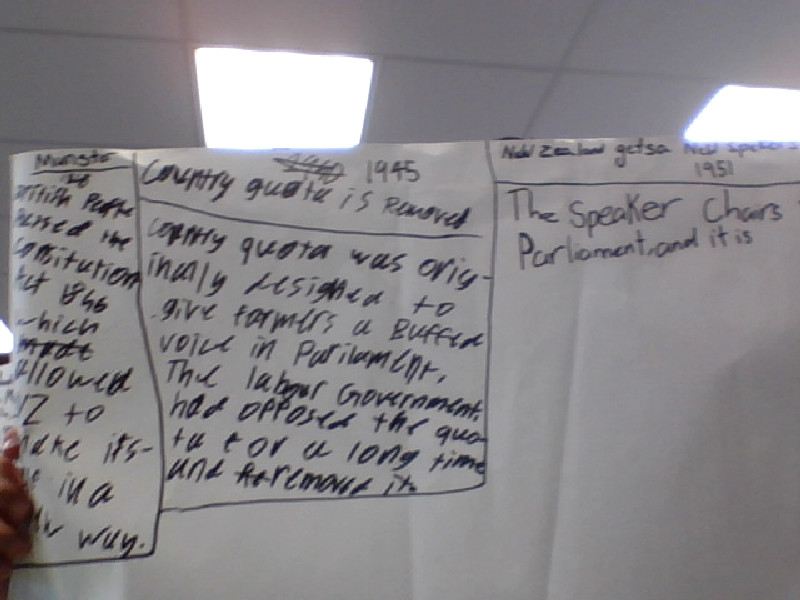 British
Passed the
constitution
Act 1846
which
made
allowed
NZ to
make its-
in a
way.
1945
Country quota is Removed
country quota was orig-
inally designed to
give farmers a Buffed
voice in Parliament,
The labour Government
had opposed the quo-
ta for a long time
and removed it.
New Zealand gets a New Speaker
1951
The Speaker Chairs
Parliament, and it is